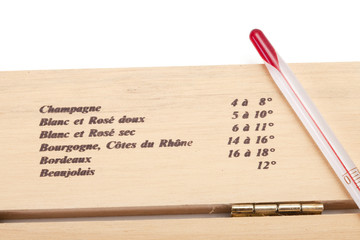 Champagne 4 à 8°
Blanc et Rosé doux 5 à 10°
Blanc et Rosé sec 6 à 11°
Bourgogne, Côtes du Rhône 14 à 16°
Bordeaux 16 à 18°
Beaujolais 12°